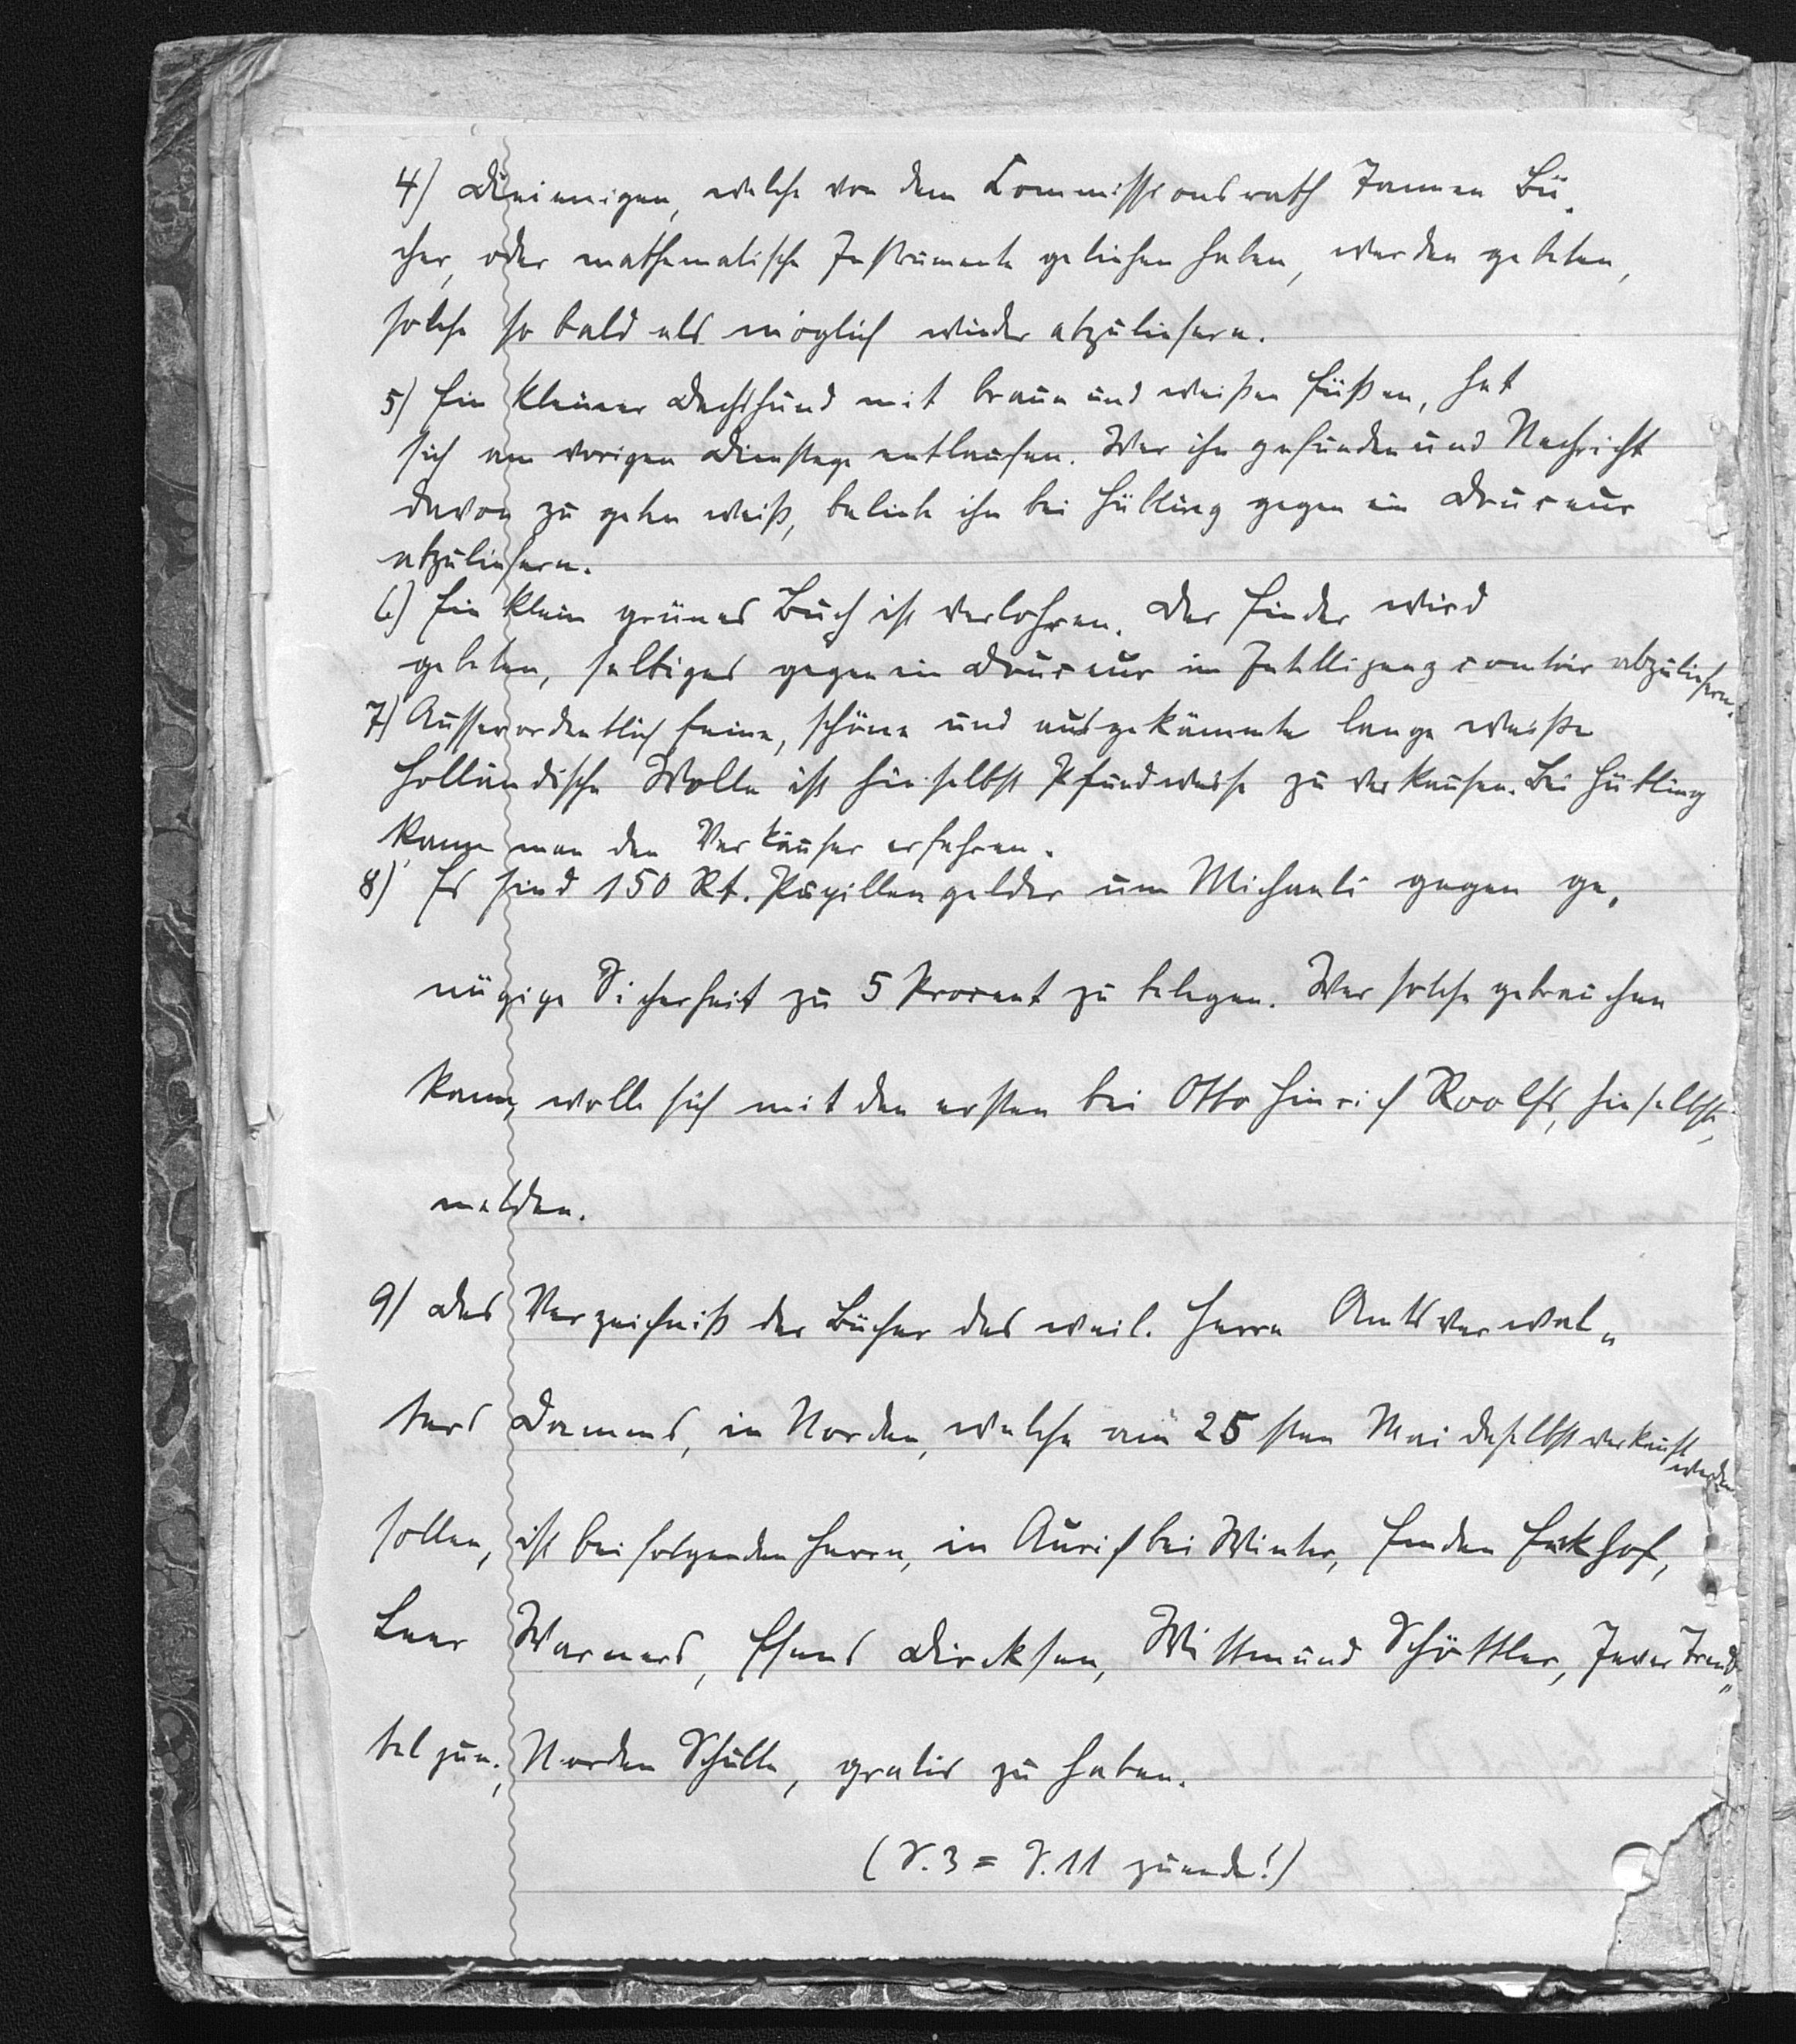 4) Dieienigen, welche von dem Commissionsrath Tannen Bü„
cher, oder mathematische Instrumente geliehen haben, werden gebeten,
solche so bald als möglich wieder abzuliefern.
5) Ein kleiner Dachshund mit braun und weißen Füßen, hat
sich am vorigen Dienstage entlaufen. Wer ihn gefunden und Nachricht
davon zu geben weiß, beliebe ihn bei Hülling gegen ein Douceur
abzuliefern.
6) Ein klein grünes Buch ist verlohren. Der Finder wird
gebeten, selbiges gegen ein Douceur im Intelligenzcomtoir abzuliefern.
7) Ausserordentlich feine, schöne und ausgekämmte lange weiße
holländische Wolle ist hieselbst Pfundweise zu verkaufen. Bei Hütling
kann man den Verkäufer erfahren.
8) Es sind 150 Rt. Pupillengelder um Michaeli gegen ge„
nügige Sicherheit zu 5 Procent zu belegen. Wer solche gebrauchen
kann, wolle sich mit den ersten bei Otto Hinrich Roolfs, hieselbst,
melden.
9) Das Verzeichniß der Bücher des weil. Herrn Amtsverwal„
ters Damms, in Norden, welche am 25sten Mai daselbst verkauft werden
sollen, ist bei folgenden Herrn, in Aurich bei Winter, Emden Eckhof,
Leer Warners, Esens Dircksen, Wittmund Schöttler, Jever Trend„
tel jun., Norden Schulte, gratis zu haben.
(S. 3 = S. 11 zuende!)